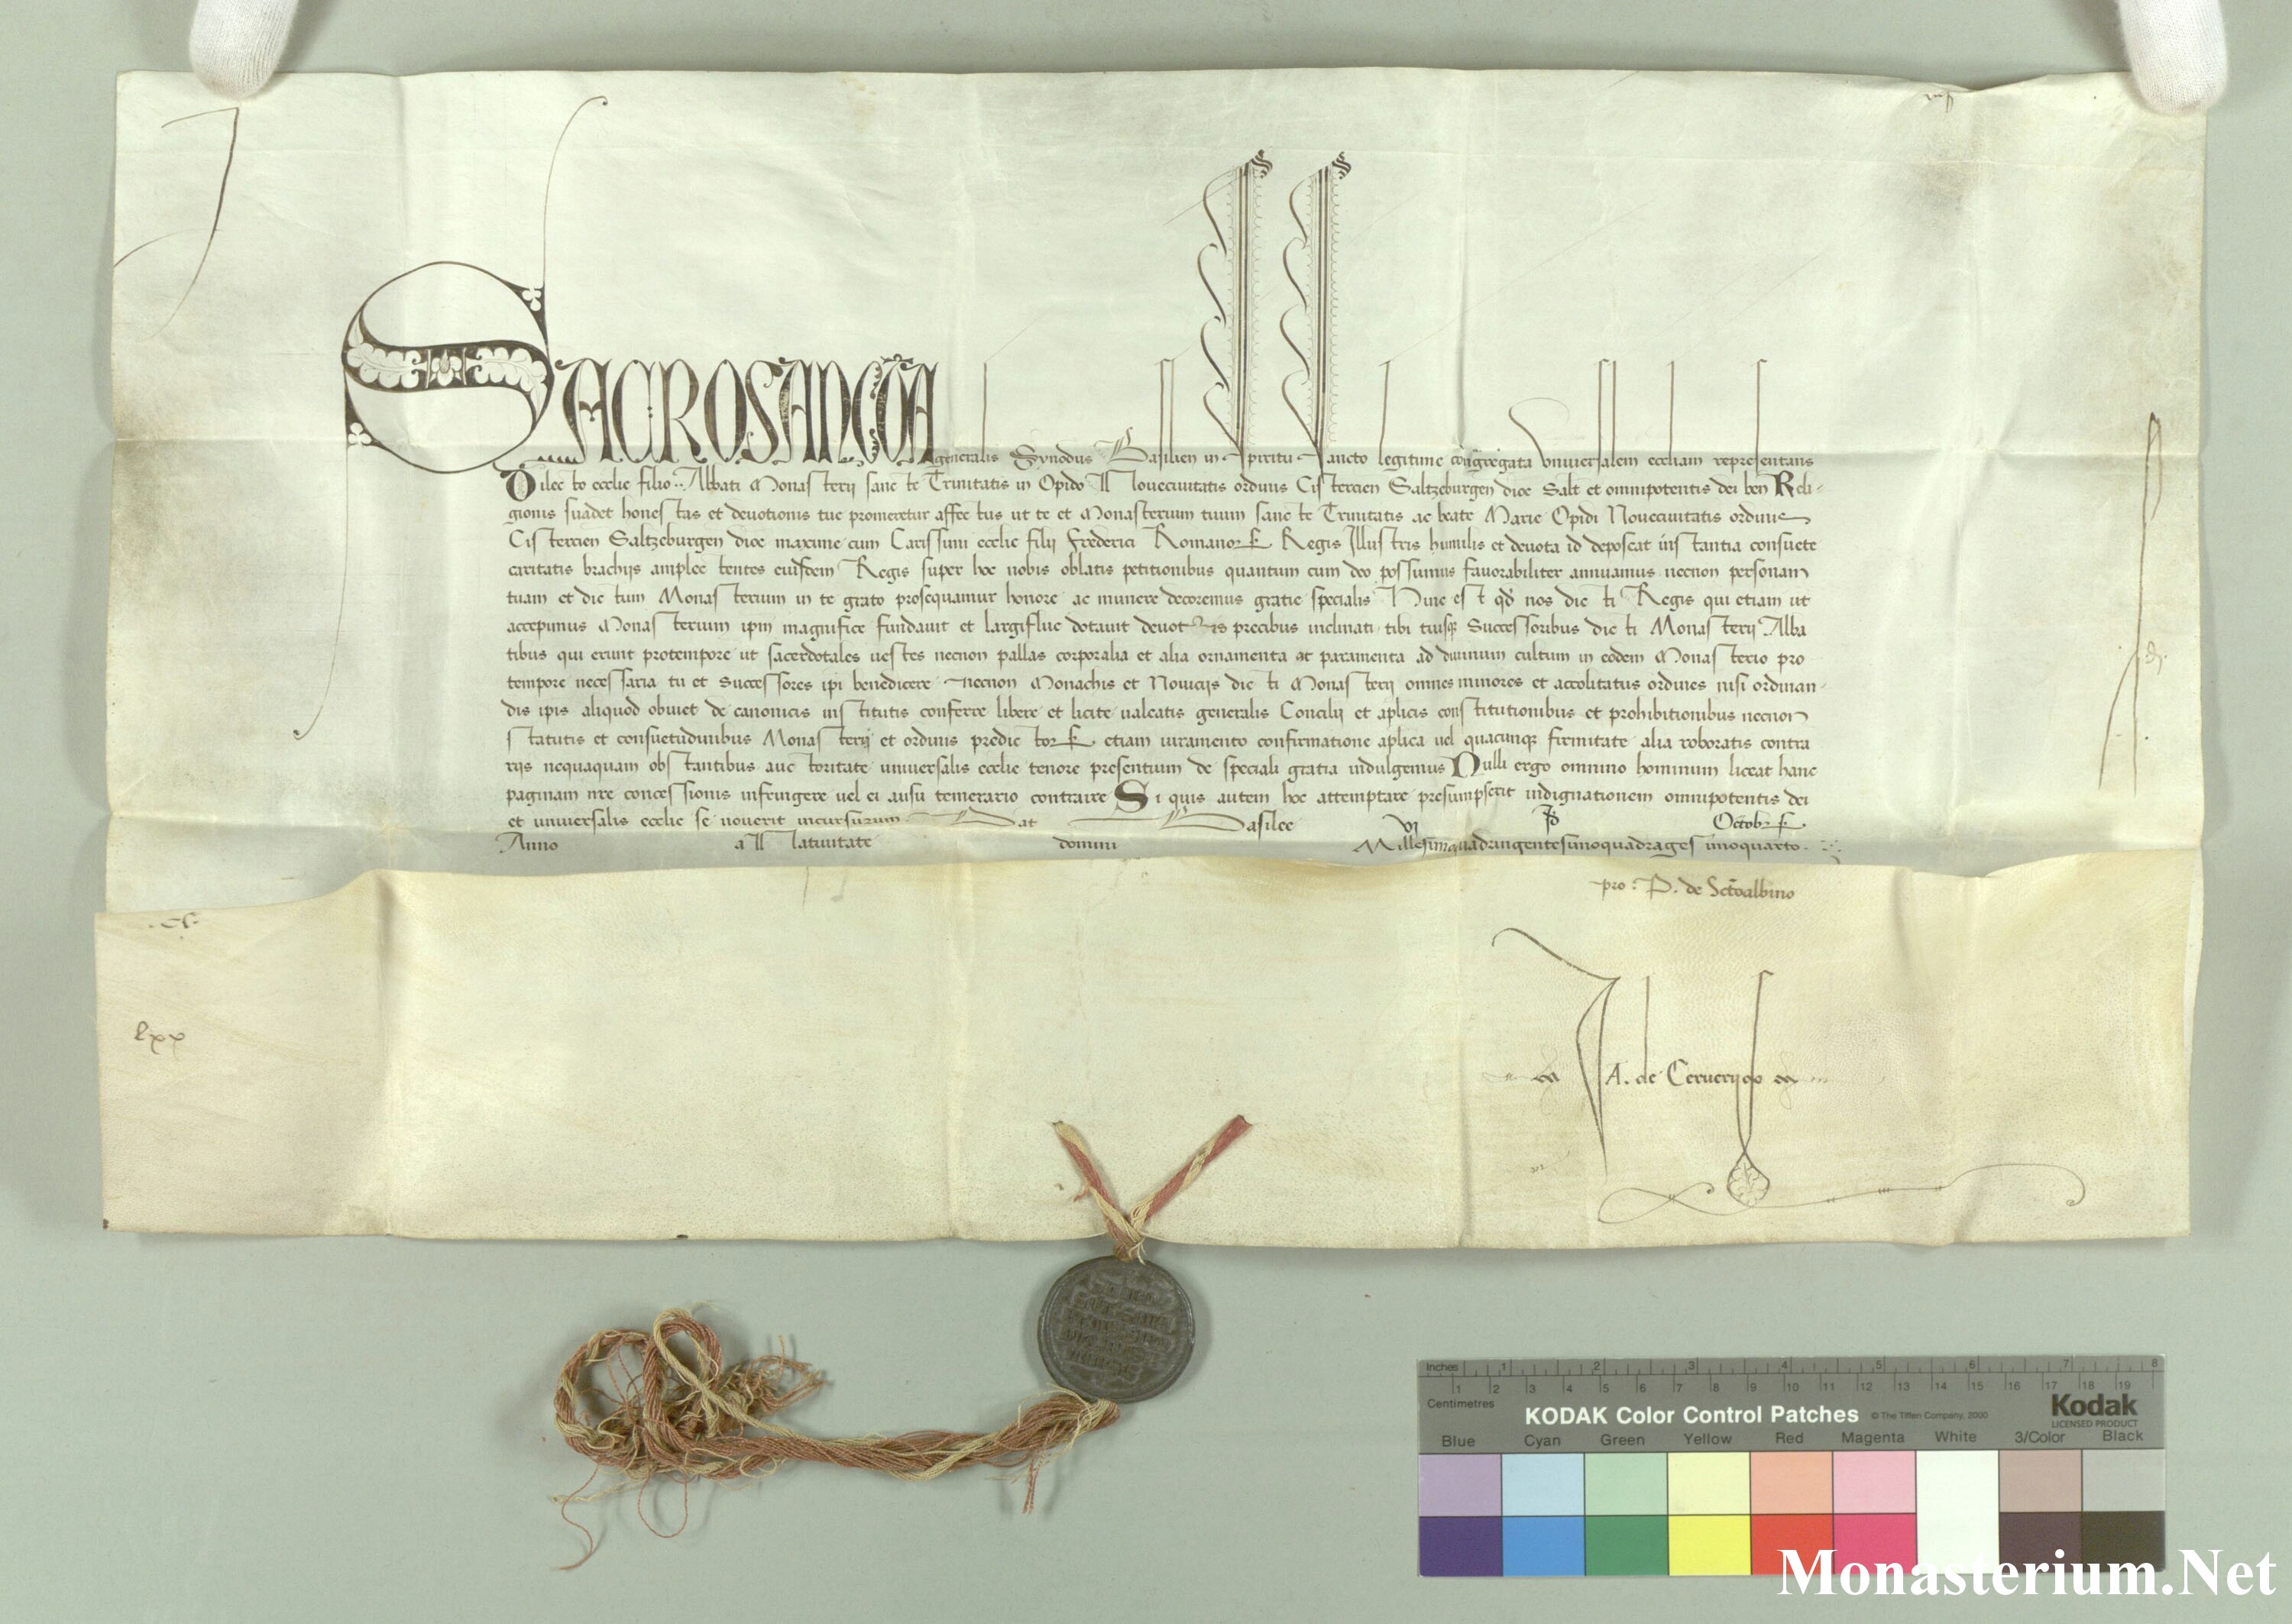 SACROSANCTA generalis Synodus Basilien in Spiritu Sancto legitime congregata vniuersalem eccliam representans
Dilecto ecclie filio .. Abbati Monasterii sancte Trinitatis in Opido Nouecivitatis ordinis Cistercien Saltzeburgen dioc Salt et omnipotentis dei ben Reli-
gionis suadet honestas et deuotionis tue promeretur affectus ut te et Monasterium tuum sancte Trinitatis ac beate Marie Opidi Nouecivitatis ordinis
Cistercien Saltzeburgen dioc maxime cum Carissimi ecclie filii Frederici Romanorum Regis Illustris humilis et deuota id deposcat instantia consuete
caritatis brachijs amplectentes eiusdem Regis super hoc nobis oblatis petitionibus quantum cum deo possumus fauorabiliter annuamus necnon personam
tuam et dictum Monasterium in te grato prosequamur honore ac munere decoremus gratie specialis Hinc est qd nos dicti Regis qui etiam ut
accepimus Monasterium ipm magnifice fundauit et largiflue dotauit deuotis precibus inclinati tibi tuisque Successoribus dicti Monasterii Abba
tibus qui erunt protempore ut sacerdotales uestes necnon pallas corporalia et alia ornamenta et paramenta ad diuinum cultum in eodem Monasterio pro
tempore necessaria tu et Successores ipi benedicere necnon Monachis et Nouicijs dicti Monasterii omnes minores et accolitatus ordines nisi ordinan-
dis ipis aliquod obuiet de canonicis institutis conferre libere et licite ualeatis generalis Concilii et aplicis constitutionibus et prohibitionibus necnon
statutis et consuetudinibus Monasterij et ordinis predictorum etiam iuramento confirmatione aplica uel quacunque firmitate alia roboratis contra
riis nequaquam obstantibus auctoritate uniuersalis ecclie tenore presentium de speciali gratia indulgemus Nulli ergo omnino hominum liceat hanc
paginam nre concessionis infringere uel ei ausu temerario contraire Si quis autem hoc attemptare presumpserit indignationem omnipotentis dei
et uniuersalis ecclie se nouerit incursurum Dat Basilee VI Id Octobr
Anno a Natiuitate domini Millesimoquadringentesimoquadragesimoquarto
pro : P. de Sctoalbino
lxx
A. de Cerueriis
Inches 1 2 3 4 5 6 7 8
Centimetres 1 2 3 4 5 6 7 8 9 10 11 12 13 14 15 16 17 18 19
KODAK Color Control Patches © The Tiffen Company, 2000 Kodak
LICENSED PRODUCT
Blue Cyan Green Yellow Red Magenta White 3/Color Black
Monasterium.Net